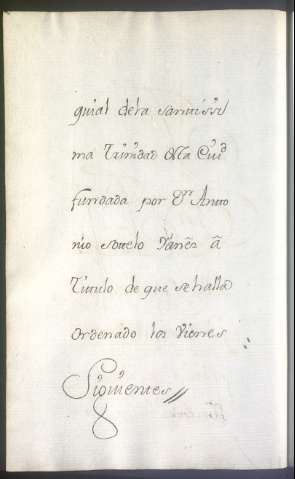 quial dela Santissi
ma Trinidad desta Ciud
fundada por Dn Anto
nio sotelo Yañez â
Titulo de que se halla
ordenado los Vienes
Siguientes